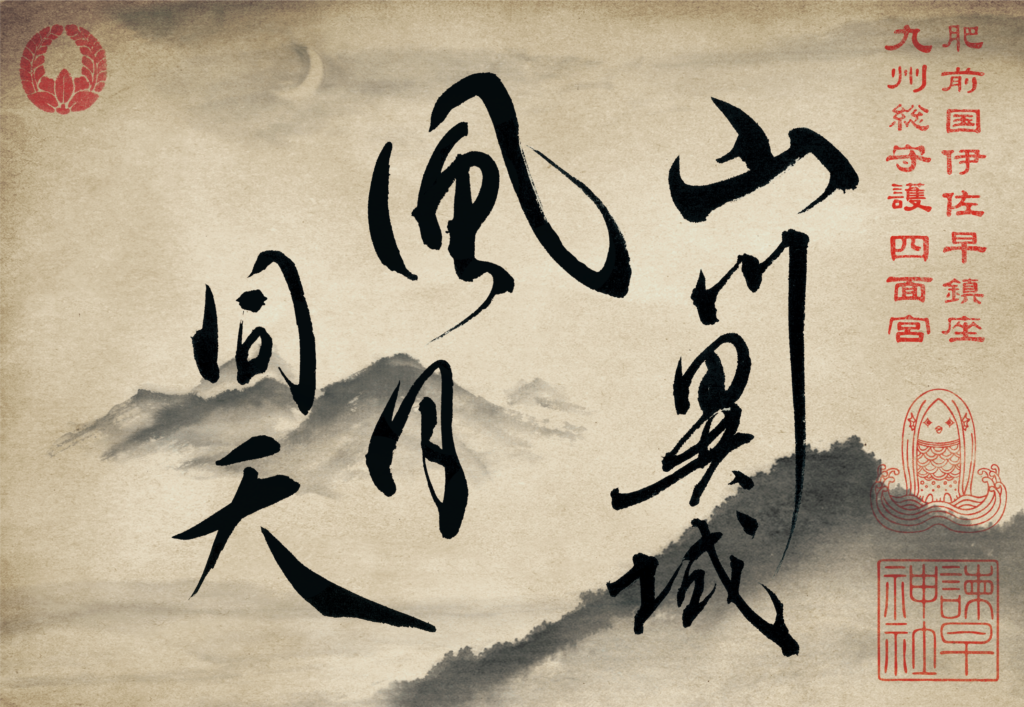 肥前国伊佐早鎮座
九州総守護 四面宮
諫早神社
山川異域
風月同天